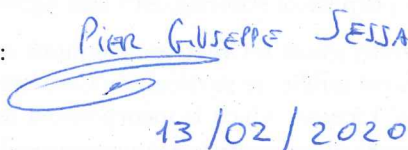 : PIER GIUSEPPE SESSA
13/02/2020